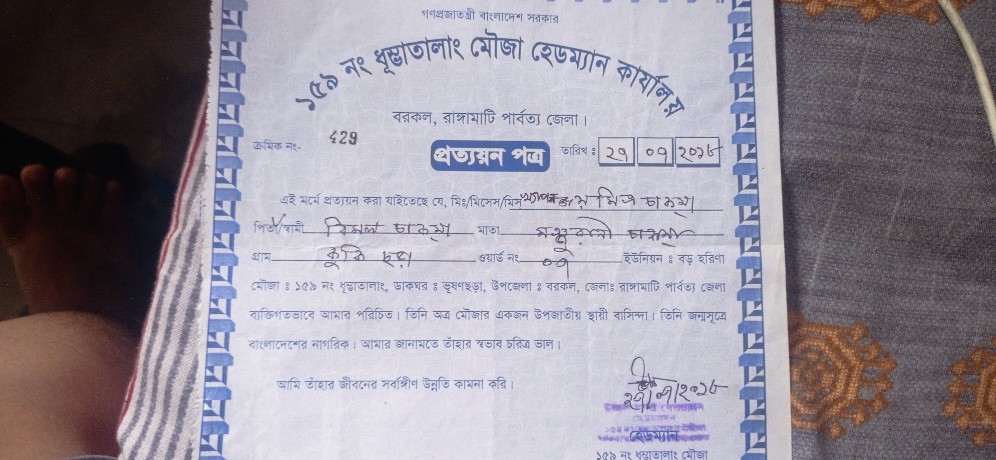 গণপ্রজাতন্ত্রী বাংলাদেশ সরকার
১৫৯ নং ধূন্ডাতালাং মৌজা হেডম্যান কার্যালয়
বরকল, রাঙ্গামাটি পার্বত্য জেলা।
ক্রমিক নং- 429
প্রত্যয়ন পত্র
তারিখ : ২৭ ০৭ ২০১৮
এই মর্মে প্রত্যয়ন করা যাইতেছে যে, মিঃ/মিসেস/মিস চাকমা
পিতা/স্বামী বিমল চাকমা মাতা চাকমা
গ্রাম ওয়ার্ড নং ০৭ ইউনিয়ন : বড় হরিণা
মৌজা : ১৫৯ নং ধূন্ডাতালাং, ডাকঘর : ভূষণছড়া, উপজেলা : বরকল, জেলাঃ রাঙ্গামাটি পার্বত্য জেলা
ব্যক্তিগতভাবে আমার পরিচিত। তিনি অত্র মৌজার একজন উপজাতীয় স্থায়ী বাসিন্দা। তিনি জন্মসূত্রে
বাংলাদেশের নাগরিক। আমার জানামতে তাঁহার স্বভাব চরিত্র ভাল।
আমি তাঁহার জীবনের সর্বাঙ্গীণ উন্নতি কামনা করি।
২৭/০৭/২০১৮
হেডম্যান
১৫৯ নং ধূন্ডাতালাং মৌজা